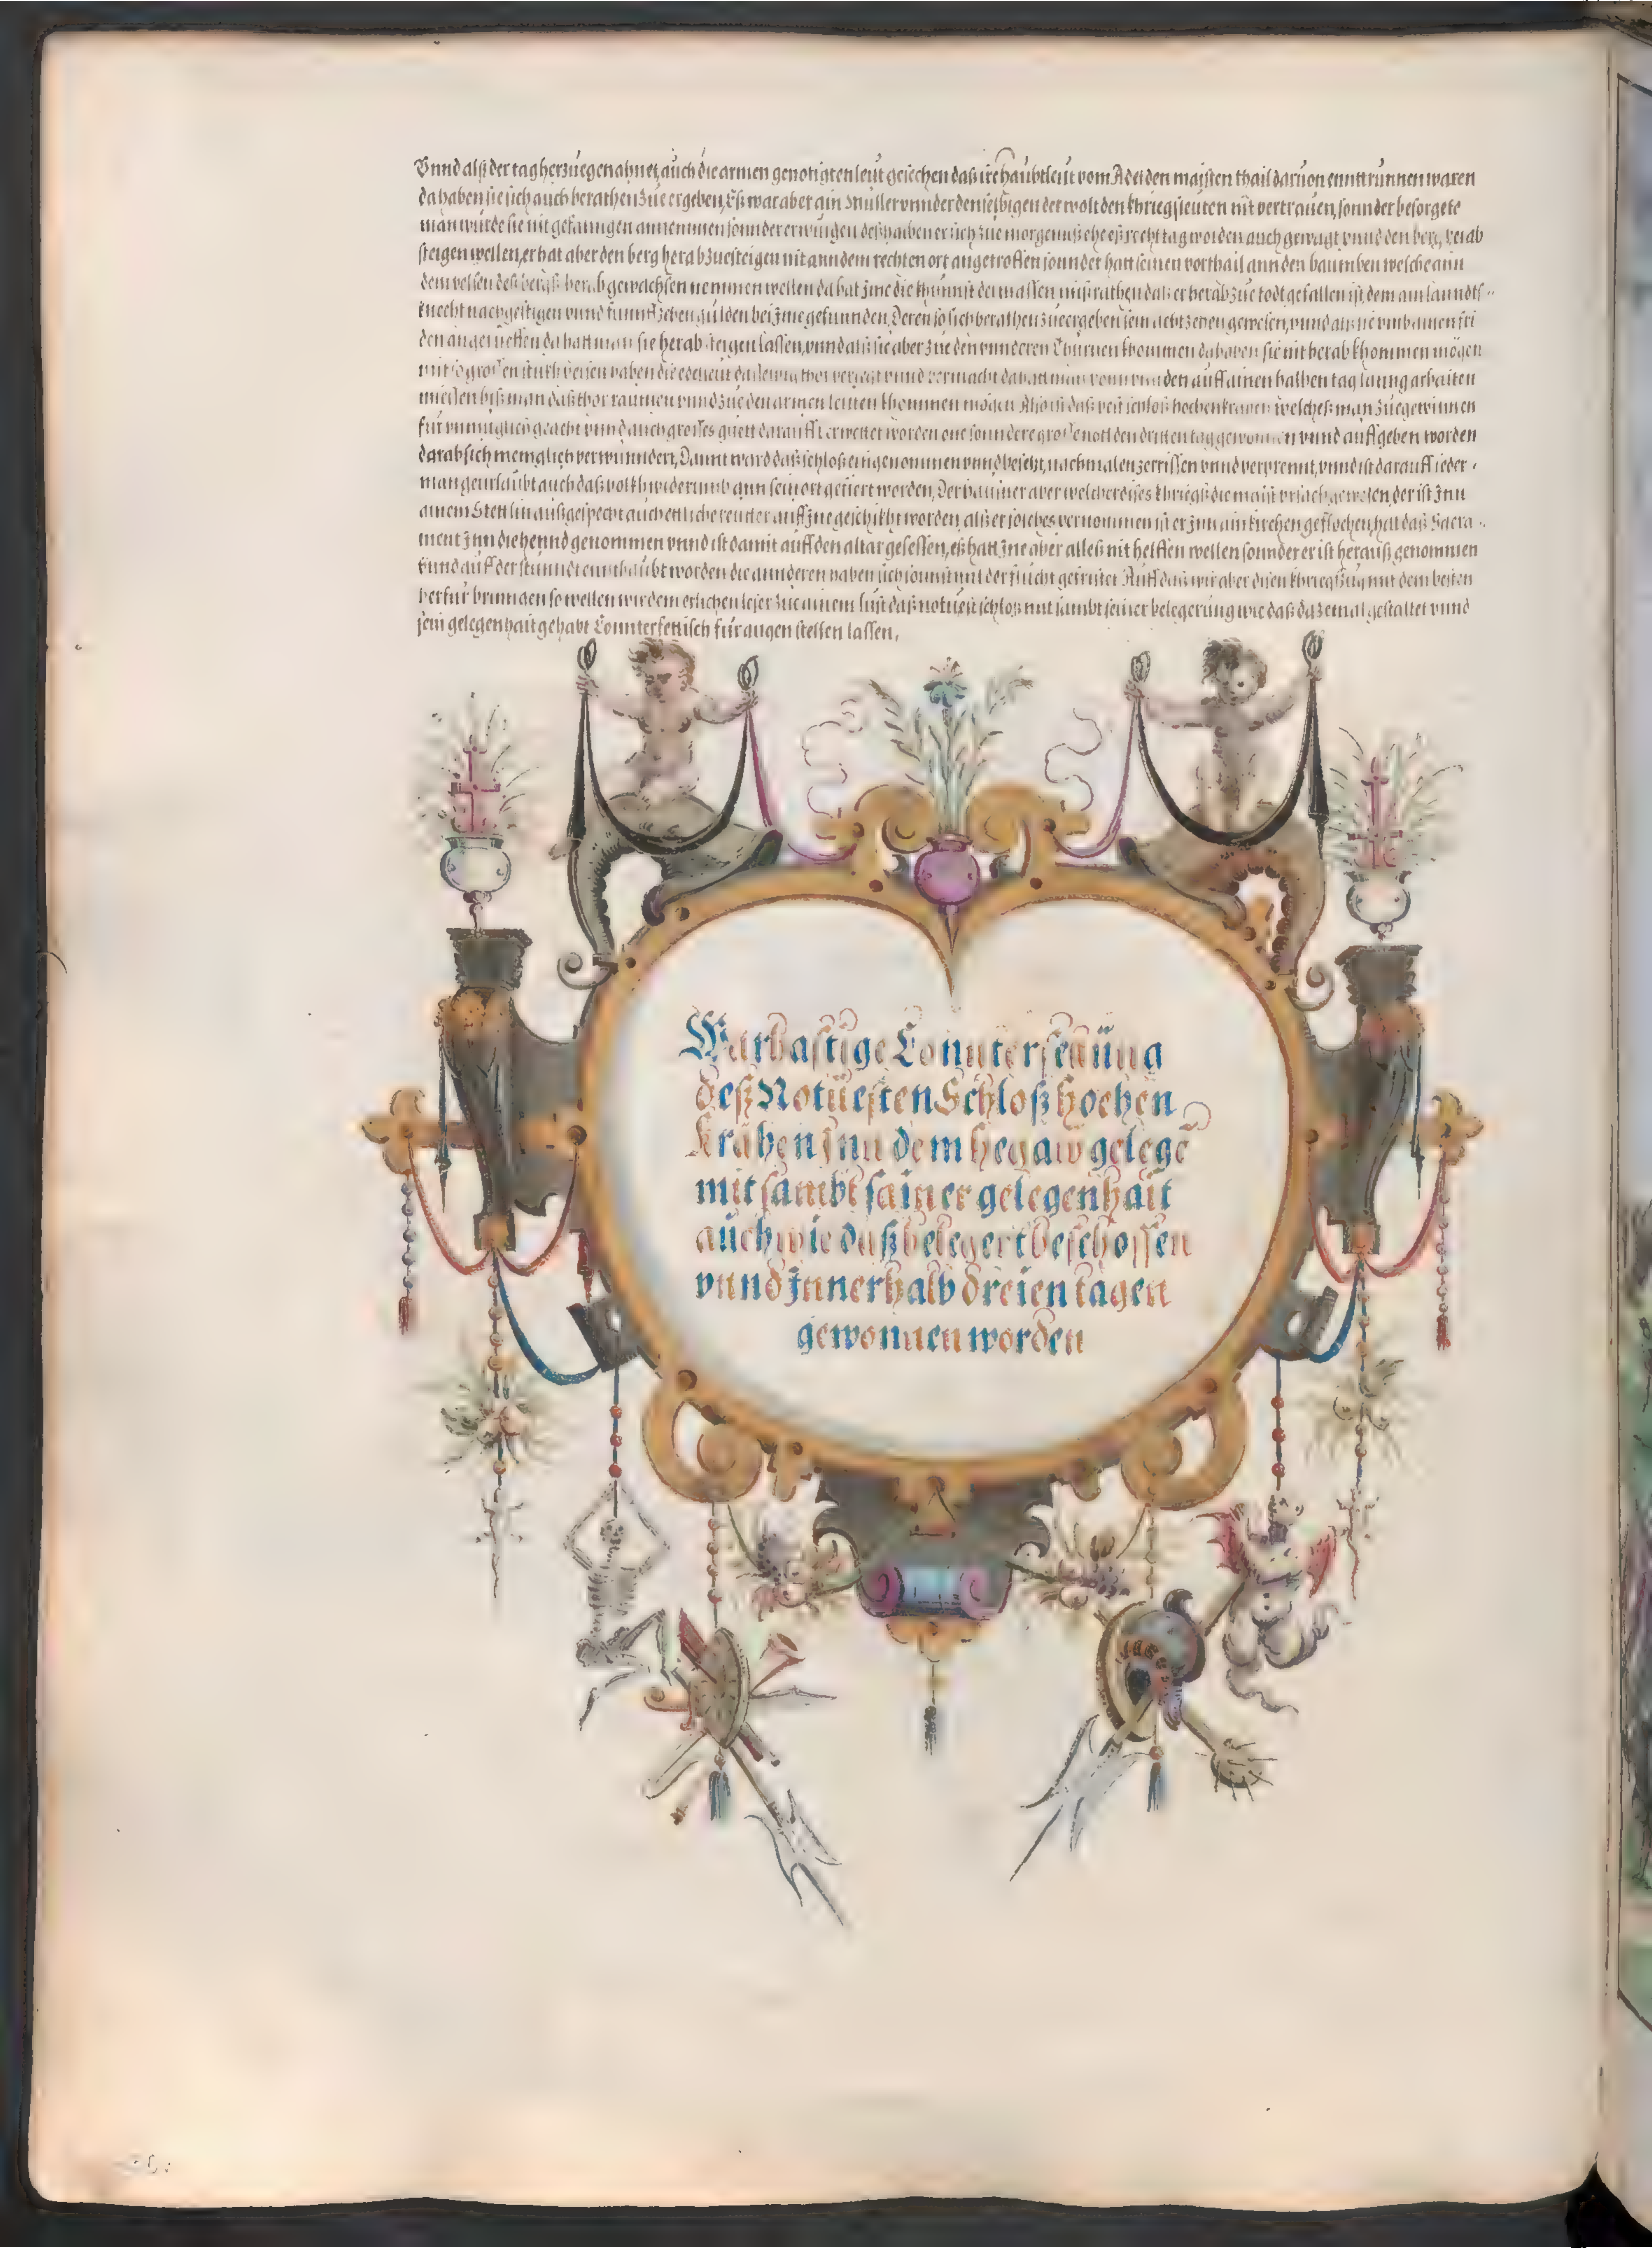 Vnnd alß der tag herzuegenahnet, auch die armen genotigten leut gesechen daß ire haubtleut vom Adel den maisten thail daruon enntrunnen waren
da haben sie sich auch berathen zue ergeben, Eß war aber ain Müller vnnder denselbigen der wolt den khriegsleuten nit vertrauen, sonnder besorgete
man würde sie nit gefanngen annemmen sonnder erwürgen deßhalben er sich zue morgennß ehe eß recht tag worden auch gewagt vnnd den berg herab
steigen wellen, er hat aber den berg herab zuesteigen nit ann dem rechten ort angetroffen sonnder hatt seinen vorthail ann den baumben welche ann
dem velsen deß bergß herab gewachsen nemmen wellen da hat jme die khunnst dermassen mißrathen daß er herab zue todt gefallen ist, dem ain lanndtß
knecht nachgestigen vnnd funnffzehen gulden bei jme gefunnden, Deren so sich berathen zue ergeben sein achtzehen gewesen, vnnd alß sie vmb ainen fri
den angerueffen da hatt man sie herab steigen lassen, vnnd alß sie aber zue den vnnderen Thurnen khommen da haben sie nit herab khommen mögen
mit so grossen stukh velsen haben die edelleut daß ewig thor verlegt vnnd vermacht da hatt man vonn vnnden auff ainen halben tag lanng arbaiten
miessen biß man daß thor raumen vnnd zue den armen leuten khommen mögen Also ist daß vest schloß hochenkraen welcheß man zuegewinnen
für vnmuglich geacht vnnd auch grosses guett darauff verwettet worden one sonndere grosse nott den dritten tag gewonnen vnnd auffgeben worden
darab sich menigklich verwunndert, Damit ward daß schloß eingenommen vnnd besetzt, nachmalen zerrissen vnnd verprennt, vnnd ist darauff ieder
man geurlaubt auch daß volkh widerumb ann sein ort gefiert worden, Der baumer aber welcher dises khriegß die maist vrsach gewesen der ist jnn
ainem Stettlin außgespecht auch ettliche reutter auff jne geschikht worden, alß er solches vernommen ist er jnn ain kirchen geflochen, hat daß Sacra
ment jnn die hennd genommen vnnd ist damit auff den altar gesessen, eß hatt jne aber alleß nit helffen wellen sonnder er ist herauß genommen
vnnd auff der stunndt enthaubt worden die annderen haben sich sounst mit der flucht gefristet Auff daß wir aber disen khriegßzug mit dem besten
herfür bringen so wellen wir dem erlichen leser zue ainem lust daß notuest schloß mit sambt seiner belegerung wie daß dazemal gestaltet vnnd
sein gelegenhait gehabt Counterfettisch für augen stellen lassen,
Warhafftige Connterfettung
deß Notuesten Schloß hochen
krähen Jnn dem hegaw gelegē
mit sambt seiner gelegenhait
auch wie daß belegert beschossen
vnnd Jnnerhalb dreien tagen
gewonnen worden